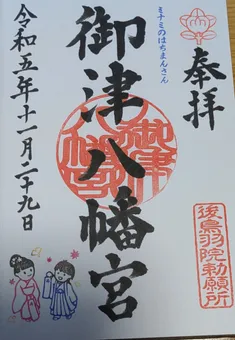 奉拝
後鳥羽院勅願所
ミナミのはちまんさん
御津八幡宮
御津八幡宮
令和五年十一月二十九日